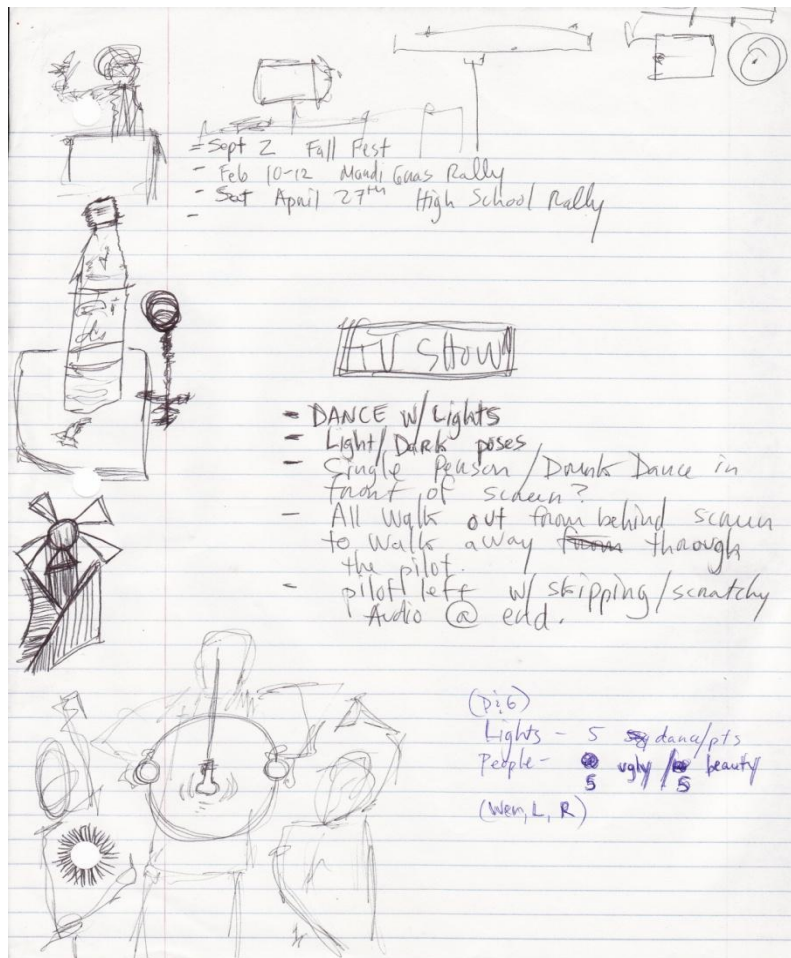 - Sept 2 Fall Fest
- Feb 10-12 Mardi Gras Rally
- Sat April 27th High School Rally
-
TV SHOW
- DANCE w/ Lights
- Light/Dark poses
- Single Person/Drunk Dance in
front of screen?
- All walk out from behind screen
to walk away from through
the pilot.
- pilot left w/ skipping/scratchy
Audio @ end.
Lights - 5 dance/pts
People - 5 ugly / 5 beauty
(Wen, L, R)